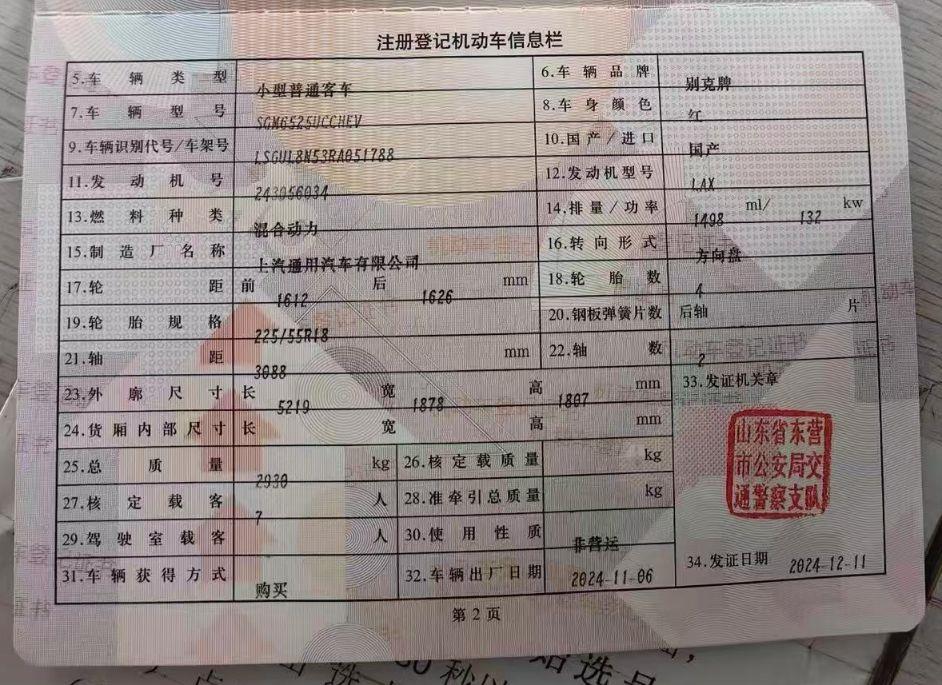 注册登记机动车信息栏
5.车辆类型 小型普通客车 6.车辆品牌 别克牌
7.车辆型号 SGM6525UCCHEV 8.车身颜色 红
9.车辆识别代号/车架号 LSGUL8N53RA051788 10.国产/进口 国产
11.发动机号 243056034 12.发动机型号 LAX
13.燃料种类 混合动力 14.排量/功率 1498 ml/ 132 kw
15.制造厂名称 上汽通用汽车有限公司 16.转向形式 方向盘
17.轮距 前 1612 后 1626 mm 18.轮胎数 4
19.轮胎规格 225/55R18 20.钢板弹簧片数 后轴 片
21.轴距 3088 mm 22.轴数 2
23.外廓尺寸 长 5219 宽 1878 高 1807 mm 33.发证机关章
24.货厢内部尺寸 长 宽 高 mm
25.总质量 2930 kg 26.核定载质量 kg
27.核定载客 7 人 28.准牵引总质量 kg
29.驾驶室载客 人 30.使用性质 非营运
31.车辆获得方式 购买 32.车辆出厂日期 2024-11-06 34.发证日期 2024-12-11
山东省东营
市公安局交
通警察支队
第2页